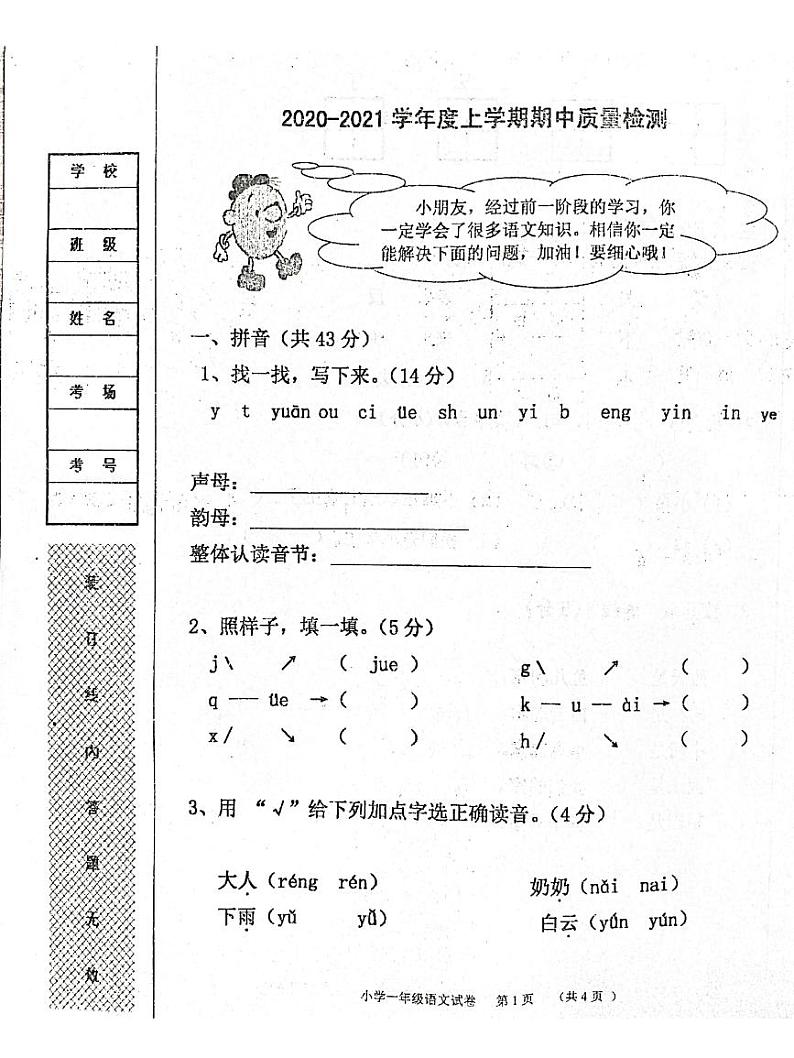 2020-2021学年度上学期期中质量检测
学 校
班 级
姓 名
考 场
考 号
装
订
线
内
答
题
无
效
小朋友，经过前一阶段的学习，你
一定学会了很多语文知识。相信你一定
能解决下面的问题，加油！要细心哦！
一、拼音（共43分）
1、找一找，写下来。（14分）
y t yuān ou ci üe sh un yi b eng yin in ye
声母：
韵母：
整体认读音节：
2、照样子，填一填。（5分）
j\ ↗ （ jue ） g\ ↗ （ ）
q — üe →（ ） k — u — ài →（ ）
x/ ↘ （ ） h/ ↘ （ ）
3、用 “√”给下列加点字选正确读音。（4分）
大人（réng rén） 奶奶（nǎi nai）
下雨（yǔ yǚ） 白云（yǘn yún）
小学一年级语文试卷 第1页 （共4页 ）